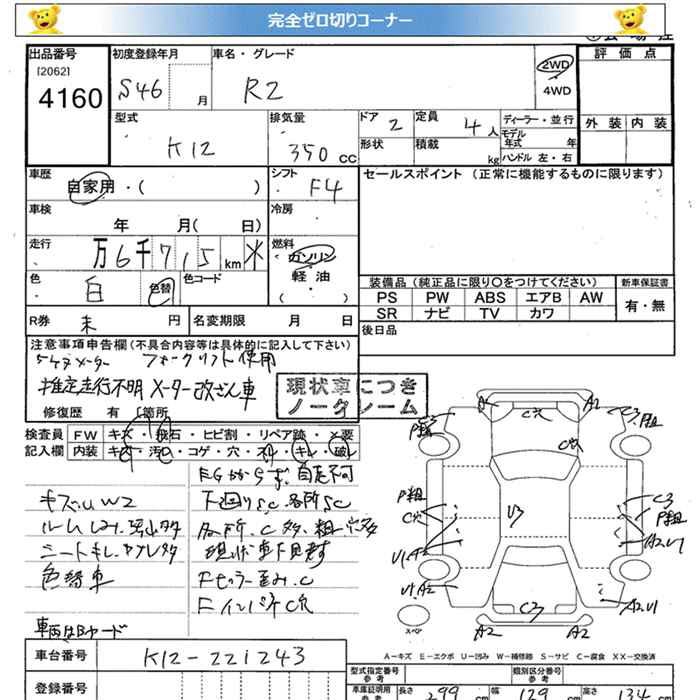 完全ゼロ切りコーナー
出品番号 初度登録年月 車名・グレード 2WD 4WD 評価点
[2062]
4160 S46 月 R2
外装 内装
型式 K12 排気量 350 cc ドア 2 定員 4 人 ディーラー・並行
形状 積載 kg モデル年式 年
ハンドル 左・右
車歴 自家用・( ) シフト F4 セールスポイント(正常に機能するものに限ります)
車検 年 月( 日) 冷房
走行 万6千715km ✕ 燃料 ガソリン 軽油 ( )
色 白 色替 色コード
装備品(純正品に限り〇をつけてください) 新車保証書
PS PW ABS エアB AW 有・無
SR ナビ TV カワ
R券 未 円 名変期限 月 日 後日品
注意事項申告欄(不具合内容等は具体的に記入して下さい)
5ケタメーター フォークリフト使用
推定走行不明 メーター改ざん車
現状車につき
ノークレーム
修復歴 有 箇所
検査員 FW キズ・飛石・ヒビ割・リペア跡・×要
記入欄 内装 キズ・汚レ・コゲ・穴・スレ・キレ・破レ
EGかからず、自走不可
キズ、UW2 下廻りSC、各所SC
ルームしみ、汚れ多 各所、C多、粗、穴多
シートキレ、ヤブレ多 現状車下見要す
色替車 Fピラー歪み、C
FインパネC穴
車両はBヤード
A1 C穴 A2
P粗 C3 P粗
C穴
P粗 C穴 U3 C3 P粗
U1 A2 A2U1
U1 A2 A2U1
C3
スペア A2 A2
A-キズ E-エクボ U-凹み W-補修跡 S-サビ C-腐食 XX-交換済
車台番号 K12-221243
登録番号
型式指定番号 参考 類別区分番号 参考
車庫証明用 参考 長さ 299 cm 幅 129 cm 高さ 134 cm